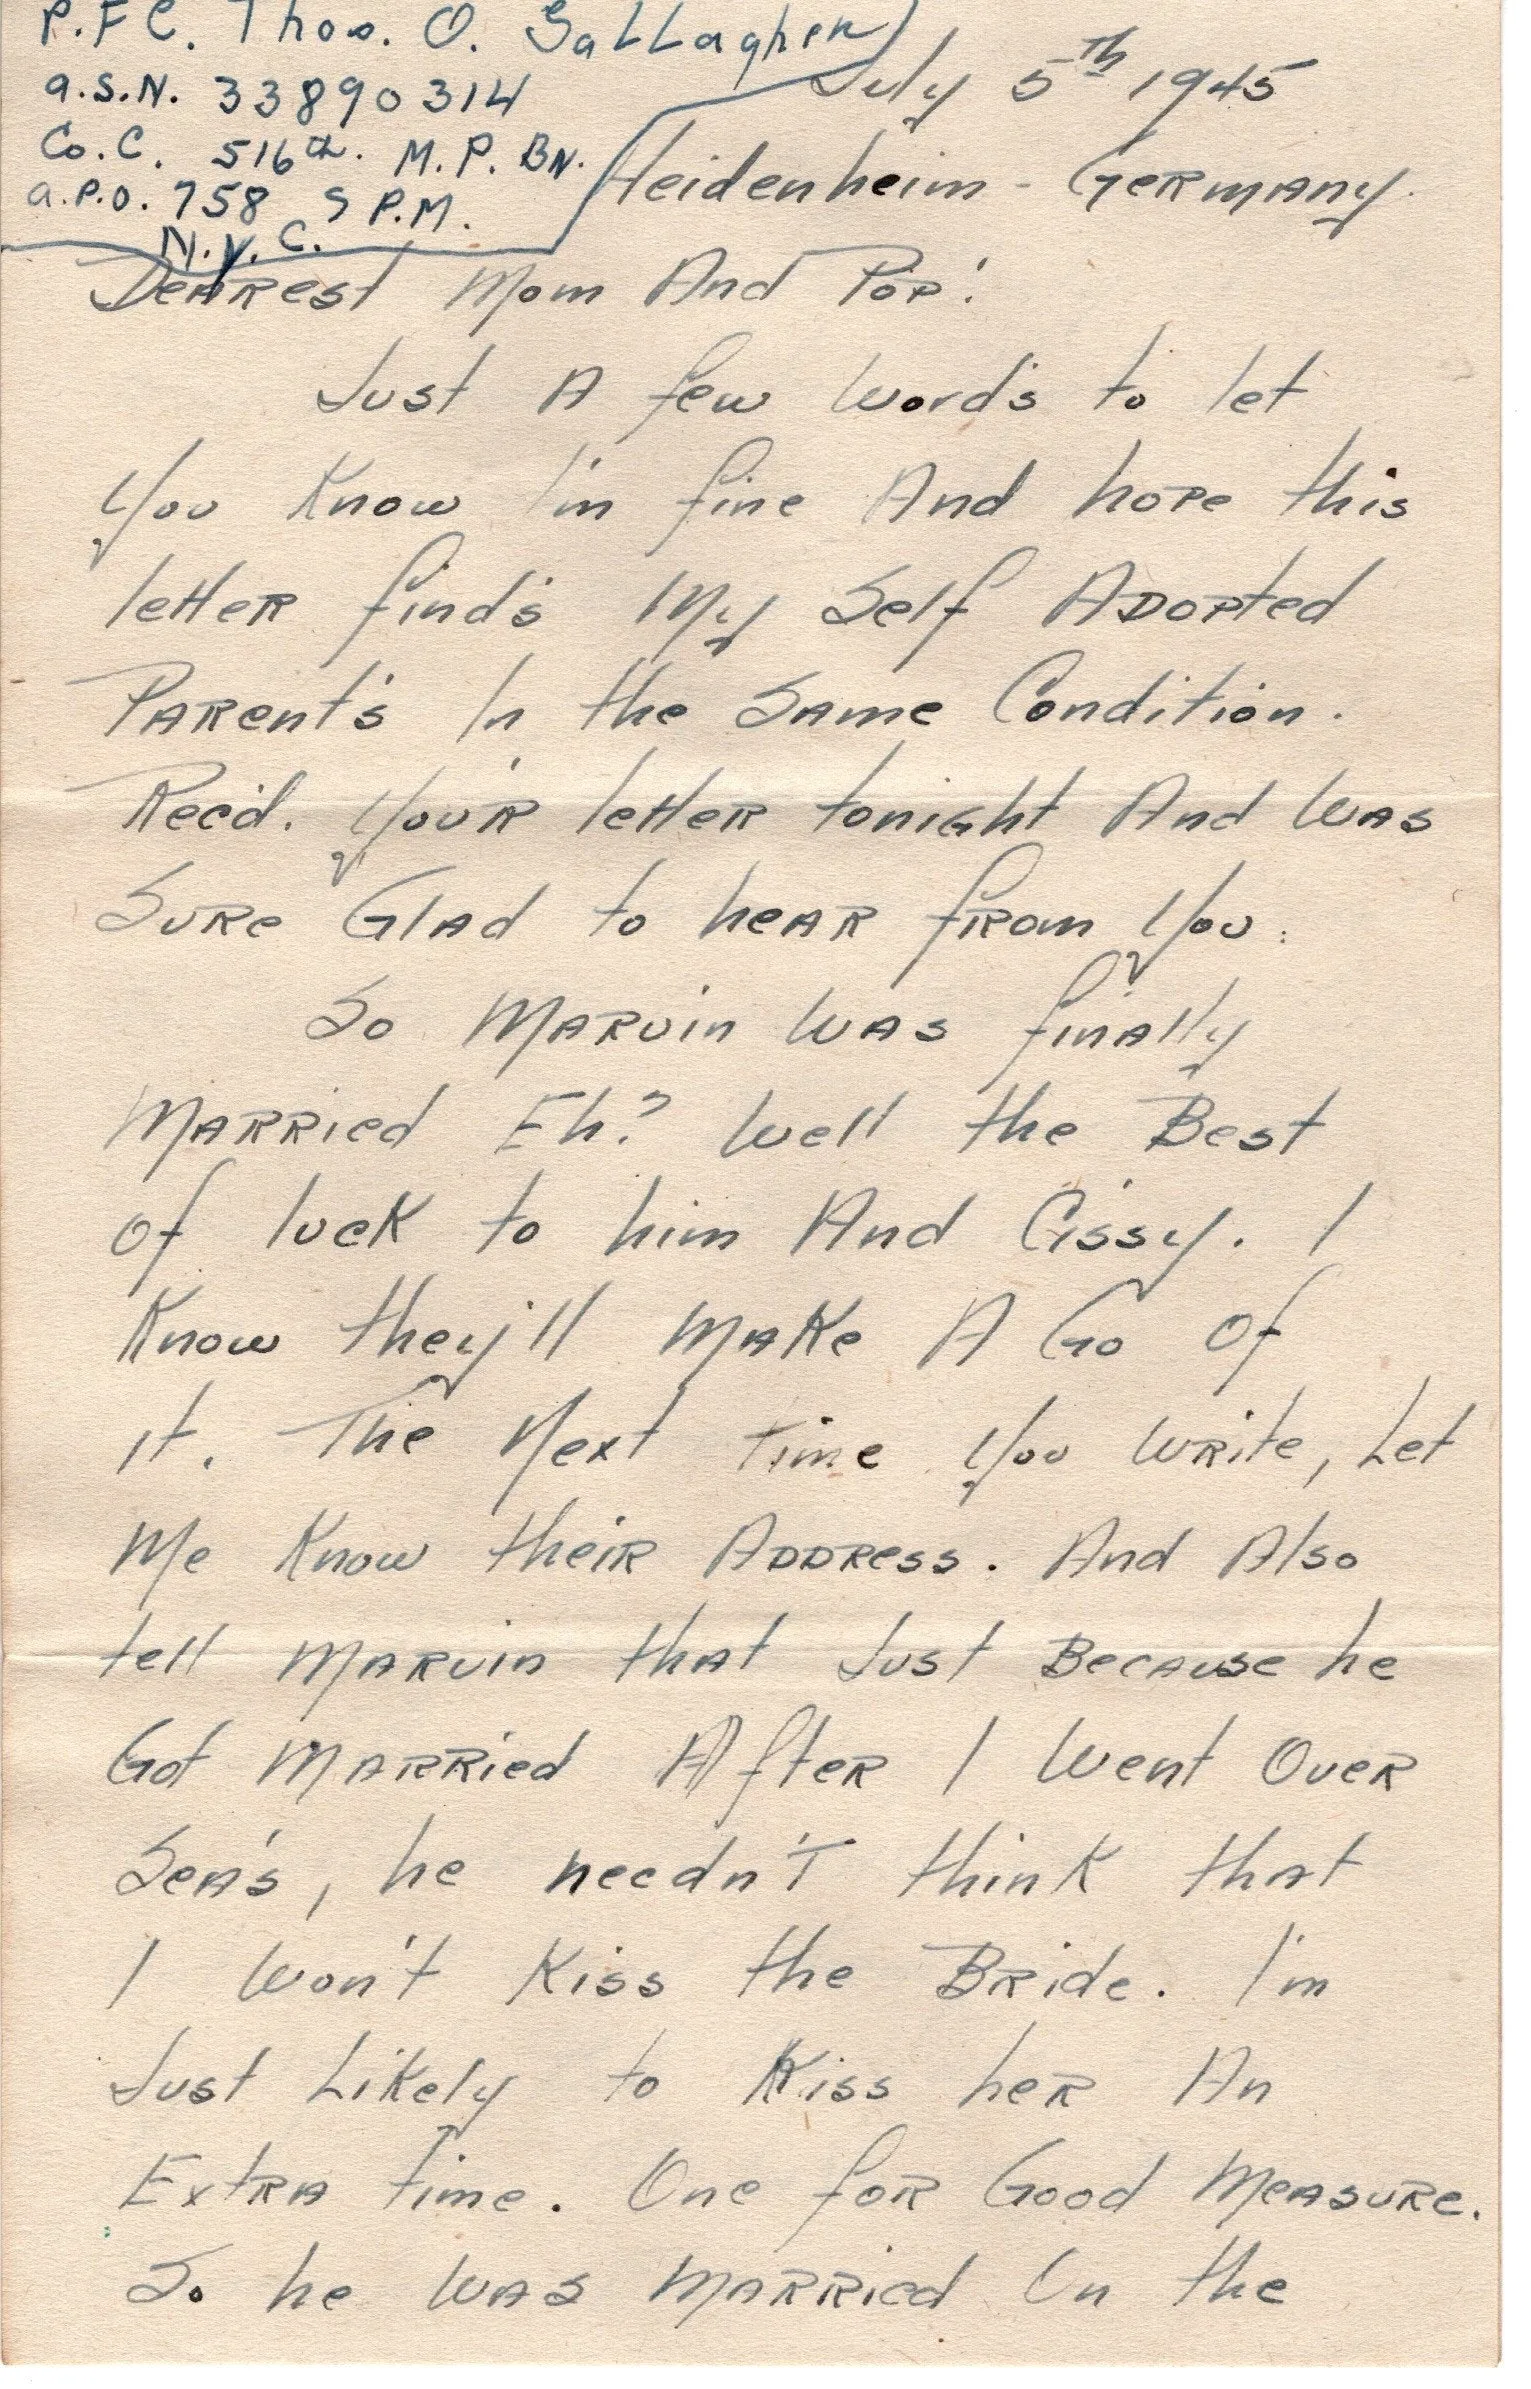 P.F.C. Thos. O. Gallagher
A.S.N. 33890314
Co. C. 516th. M.P. Bn.
A.P.O. 758 % P.M.
N.Y.C.
July 5th 1945
Heidenheim - Germany.
Dearest Mom And Pop:
Just A few words to let
You Know I'm fine And hope this
letter find's My Self Adopted
Parent's In the Same Condition.
Rec'd. You'r letter tonight And Was
Sure Glad to hear from You.
So Marvin Was finally
Married Eh? Well the Best
Of luck to him And Cissy. I
Know they'll Make A Go Of
It. The Next time You Write, Let
Me Know their Address. And Also
tell Marvin that Just Because he
Got Married After I Went Over
Sea's, he needn't think that
I Won't Kiss the Bride. I'm
Just Likely to Kiss her An
Extra time. One for Good Measure.
So he Was Married On the